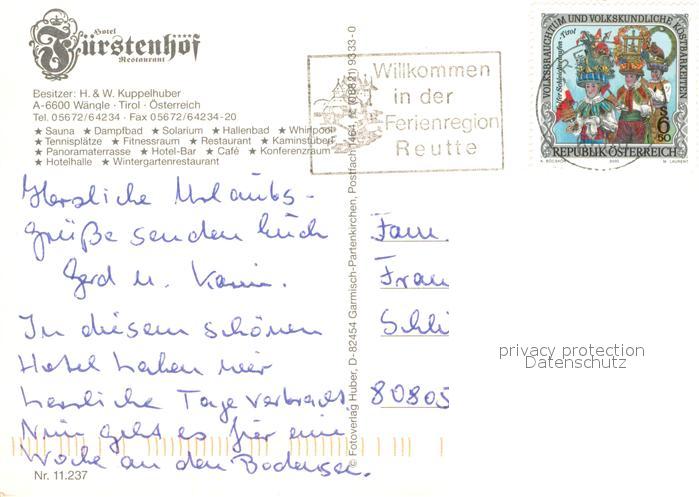 Hotel
Fürstenhof
Restaurant
Besitzer: H. & W. Kuppelhuber
A-6600 Wängle · Tirol · Österreich
Tel. 05672/64234 · Fax 05672/64234-20
★ Sauna ★ Dampfbad ★ Solarium ★ Hallenbad ★ Whirlpool
★ Tennisplätze ★ Fitnessraum ★ Restaurant ★ Kaminstuberl
★ Panoramaterrasse ★ Hotel-Bar ★ Café ★ Konferenzraum
★ Hotelhalle ★ Wintergartenrestaurant
Herzliche Urlaubs-
grüße senden Euch
Gerd u. Karin.
In diesem schönen
Hotel haben wir
herrliche Tage verbracht.
Nun geht es für eine
Woche an den Bodensee.
Nr. 11.237
© Fotoverlag Huber, D-82454 Garmisch-Partenkirchen, Postfach 1464, (08821) 9333-0
Willkommen
in der
Ferienregion
Reutte
VOLKSBRAUCHTUM UND VOLKSKUNDLICHE KOSTBARKEITEN
Tirol
S 6.50
REPUBLIK ÖSTERREICH
M. LAURENT
Fam.
Frau
Schli
80805
privacy protection
Datenschutz